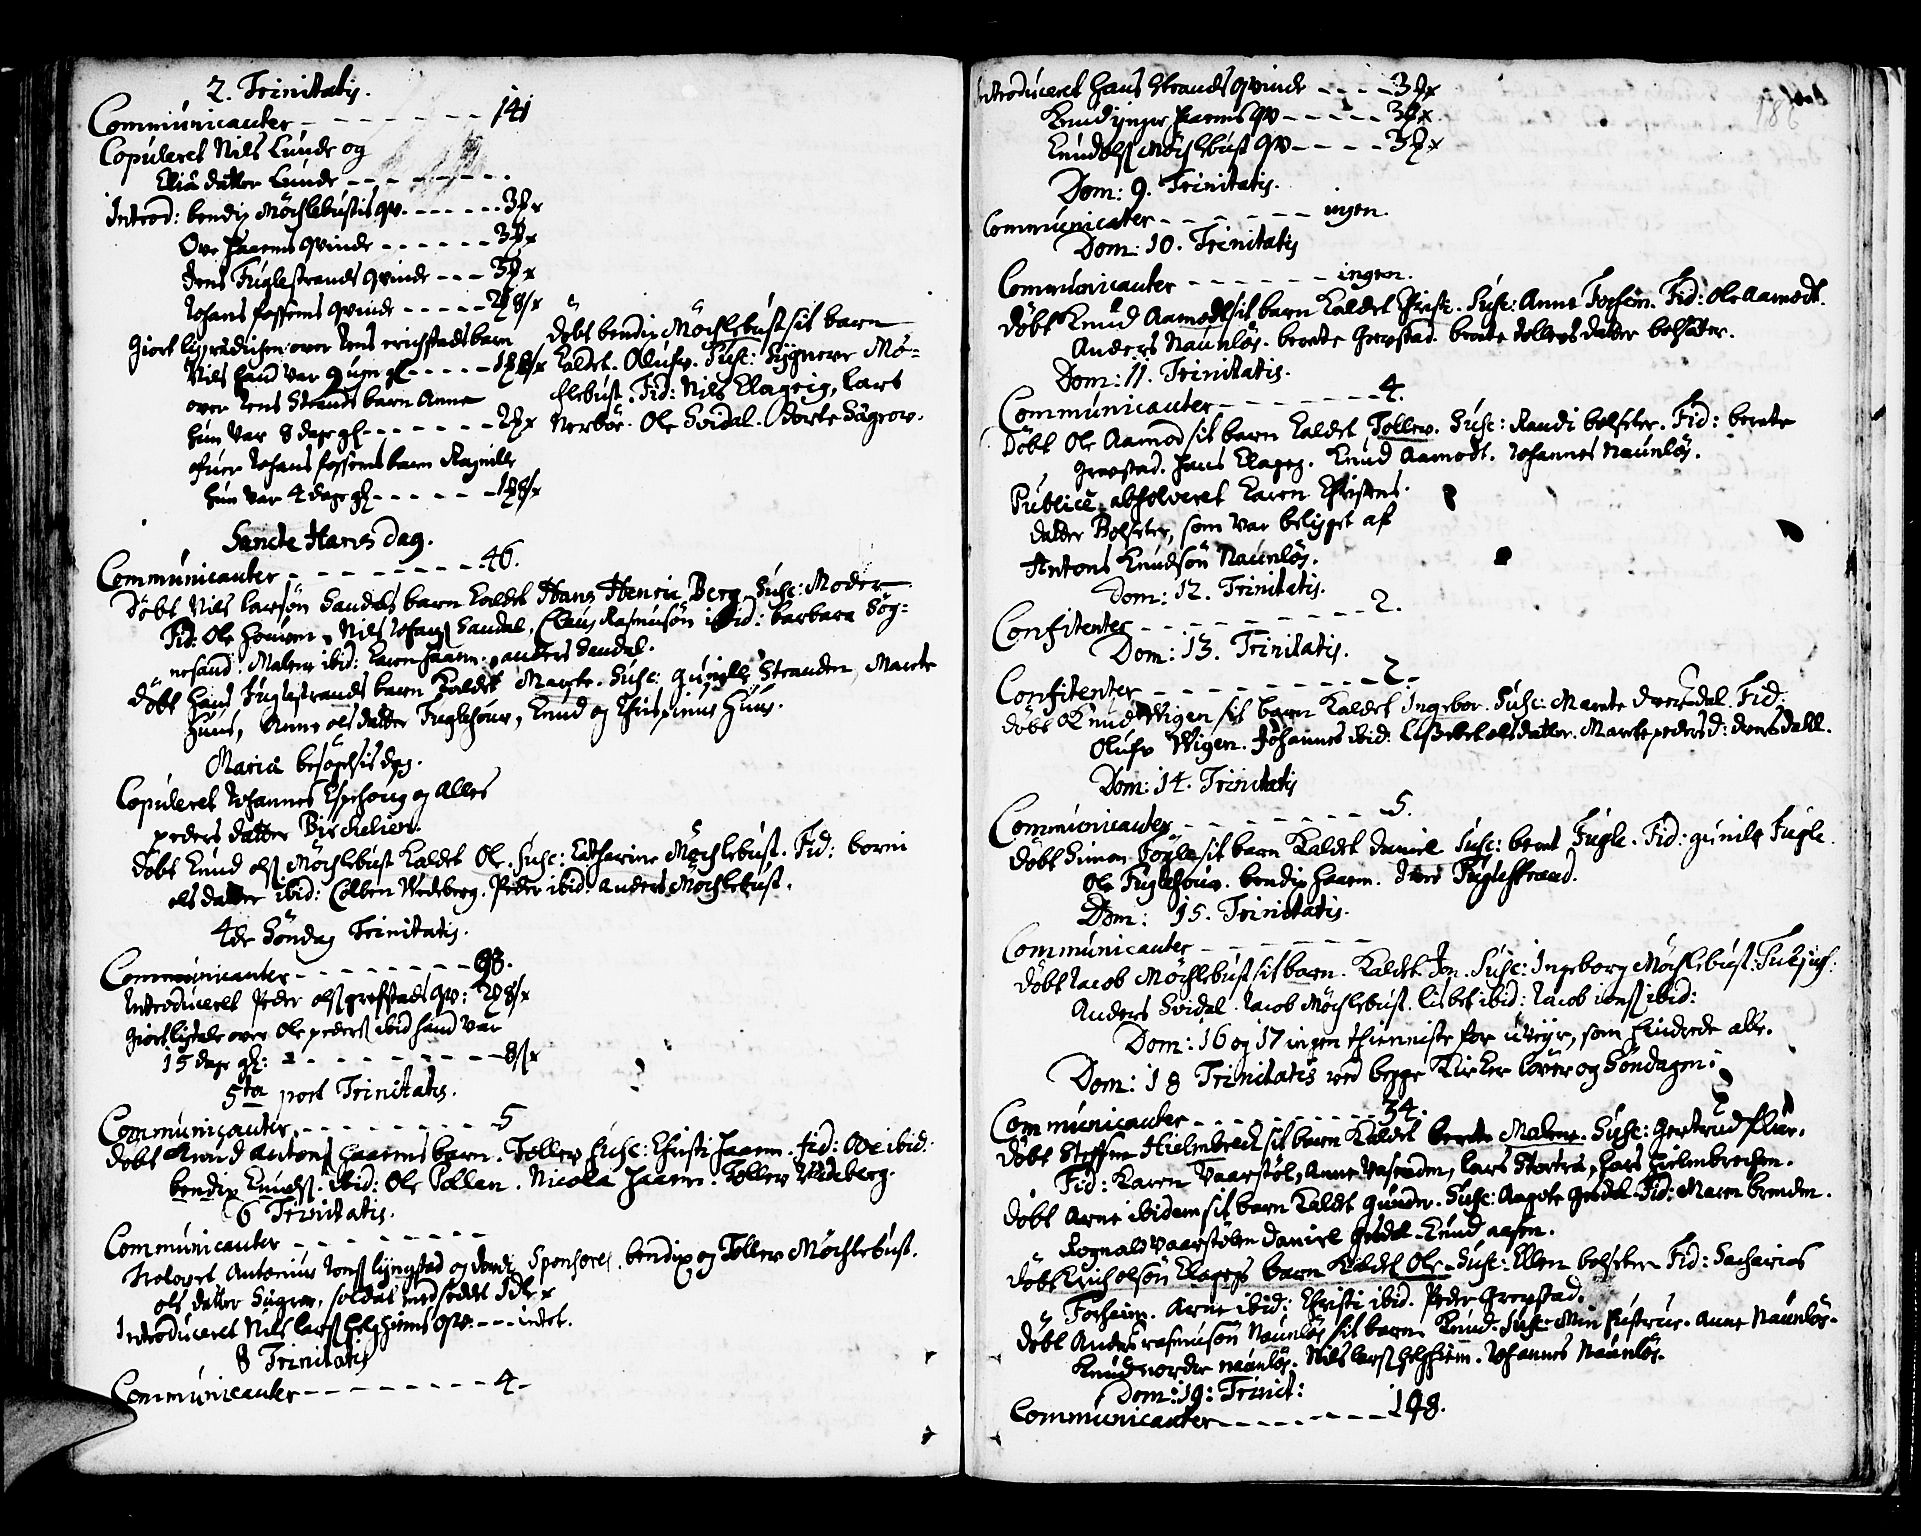 2. Trinitatis.
Communicanter - - - - - - - - 141
Copuleret Nils Lunde og
Eliæ datter Lunde - - - - - - - -
Introd: bendix Möchlebustis qv. - - - - - -
Ove Haarms qvinde - - - - - -
Jens Fuglestrands qvinde - - -
Johans fossems qvinde - - - - -
Giort ligprædichen over Jens erichstads barn
Nils hand var 9 ugr gl - - - - -
over Jens Strands barn Anne
hun var 8 dage gl - - - - - - -
ofuer Johans fossems barn Ragnille
hun var 4 dage gl - - - - - -
döbt bendix Möchlebust sit barn
kaldet. Oluf. Susc: Sygnove Mö-
chlebust. Fid: Nils Elagrig, Lars
Nerbör. Ole Svidal. Dorte Sögrov.
Sancte Hans dag.
Communicanter - - - - - - - - 46.
Döbt Nils larsön Sandals barn kaldet Hans Henric Berg. Susc: Moder
Fid: Ole houven, Nils Johans Sandal, Claus Rasmusön ibid: barbara Sög-
nesand. Malene ibid: karen haarm. anders Sandal.
döbt hans Fuglestrands barn kaldet Marte. Susc: gunille Stranden, Marte
huus, Anne olsdatter Fuglehouv, Knud og Chrispinus Huus.
Mariæ besögelsis dag.
Copuleret Johannes Espehoug og Alles
peders datter Birchelien.
döbt Knud ols Möchlebust kaldet Ole. Susc: Catharine Möchlebust. Fid: borni
olsdatter ibid: Colben Wedeberg. Peder ibid. Anders Möchlebust.
4de Söndag Trinitatis.
Communicanter - - - - - - - - 98.
Introduceret Peder ols grefstads qv:
giort ligtale over Ole peders ibid hand var
15 dage gl: - - - - - - - - - -
5ta post Trinitatis.
Communicanter - - - - - - - - 5
döbt Knud Antons Haarms barn. Tollev Susc: Christi Haarm. Fid: Ove ibid:
bendix Knuds: ibid: Ole Pollan. Nicola Haarm. Tollev Wedeberg.
6 Trinitatis.
Communicanter - - - - - - - - -
Trolovet Antonius Jons lyngstad og dordi Sponsores. bendix og Tollev Möchlebust.
ols datter Sugrov, soldat med seddel
Introduceret Nils lars helgheims qv: - - - intet.
8 Trinitatis
Communicanter - - - - - - - - - 4.
Introduceret Hans Strands qvinde - - - -
Knud ynger Haarms qv - - - - -
Knud ols Möchlebust qv - - - -
Dom: 9. Trinitatis.
Communicater - - - - - - - ingen.
Dom: 10. Trinitatis
Communicanter - - - - - - ingen.
döbt Knud Aamodt sit barn kaldet Christi. Susc: Anne Forseim. Fid: Ole Aamodt.
Anders Naunlös. berete Grevstad. berete tollevs datter bolsæter.
Dom: 11. Trinitatis.
Communicanter - - - - - - - 4.
Döbt Ole Aamod sit barn kaldet Tollev. Susc: Randi bolseter. Fid: berete
Grevstad. Hans Elageg. Knud Aamodt. Johannes Naunlös.
Publicè absolveret karen Christens
datter Bolseter, som var beligget af
Antons Knudsön Naunlös.
Dom: 12. Trinitatis.
Confitenter - - - - - - - - - 2.
Dom: 13. Trinitatis.
Confitenter - - - - - - - - - - 2.
döbt Knud Wigen sit barn kaldet Ingebor. Susc: Marete dvergdal. Fid:
Olufv Wigen. Johannes ibid: Lisebet olsdatter. Marte peders d: dvergdall.
Dom: 14. Trinitatis
Communicanter - - - - - - - 5.
döbt Simon Fogle sit barn kaldet daniel Susc: berent Fugle. Fid: gunile Fugle.
Ole Fuglehouv. bendix haarm. Iver Fuglestrand.
Dom: 15. Trinitatis.
Communicanter - - - - - - -
döbt Jacob Möchlebust sit barn. kaldet Jon. Susc: Ingeborg Möchlebust.
Anders Svidal. Jacob Möchlebust. lisbet ibid: Jacob iens ibid:
Dom: 16 og 17 ingen thienniste for uveyr, som hindrede alle.
Dom: 18 Trinitatis ved begge Kirker löver og Söndagen:
Communicanter - - - - - - - - 34.
döbt Steffen Hielmbreck sit barn kaldet berete Malene. Susc: Gertrud
Fid: karen Vaarstöl, Anne Vasenden, lars Stortræ, hans hielmbrechen.
döbt Arne ibidem sit barn kaldet Gunder. Susc: Aagote Grodal Fid: Maren brenden.
Rognald Vaarstölen Daniel Grodal Knud aasen.
Döbt Erich olsön Elagegs barn kaldet Ole. Susc: Ellen bolseter Fid: Sacharias
Forseim. Arne ibid: Christi ibid. Peder Grevstad.
döbt Anders rasmusön Naunlös sit barn Knud. Susc: Min hustrue. Anne Naunlös.
Knud nordre naunlös. Nils lars helgheim. Johannes Naunlös.
Dom: 19: Trinit:
Communicanter - - - - - - - - 198.